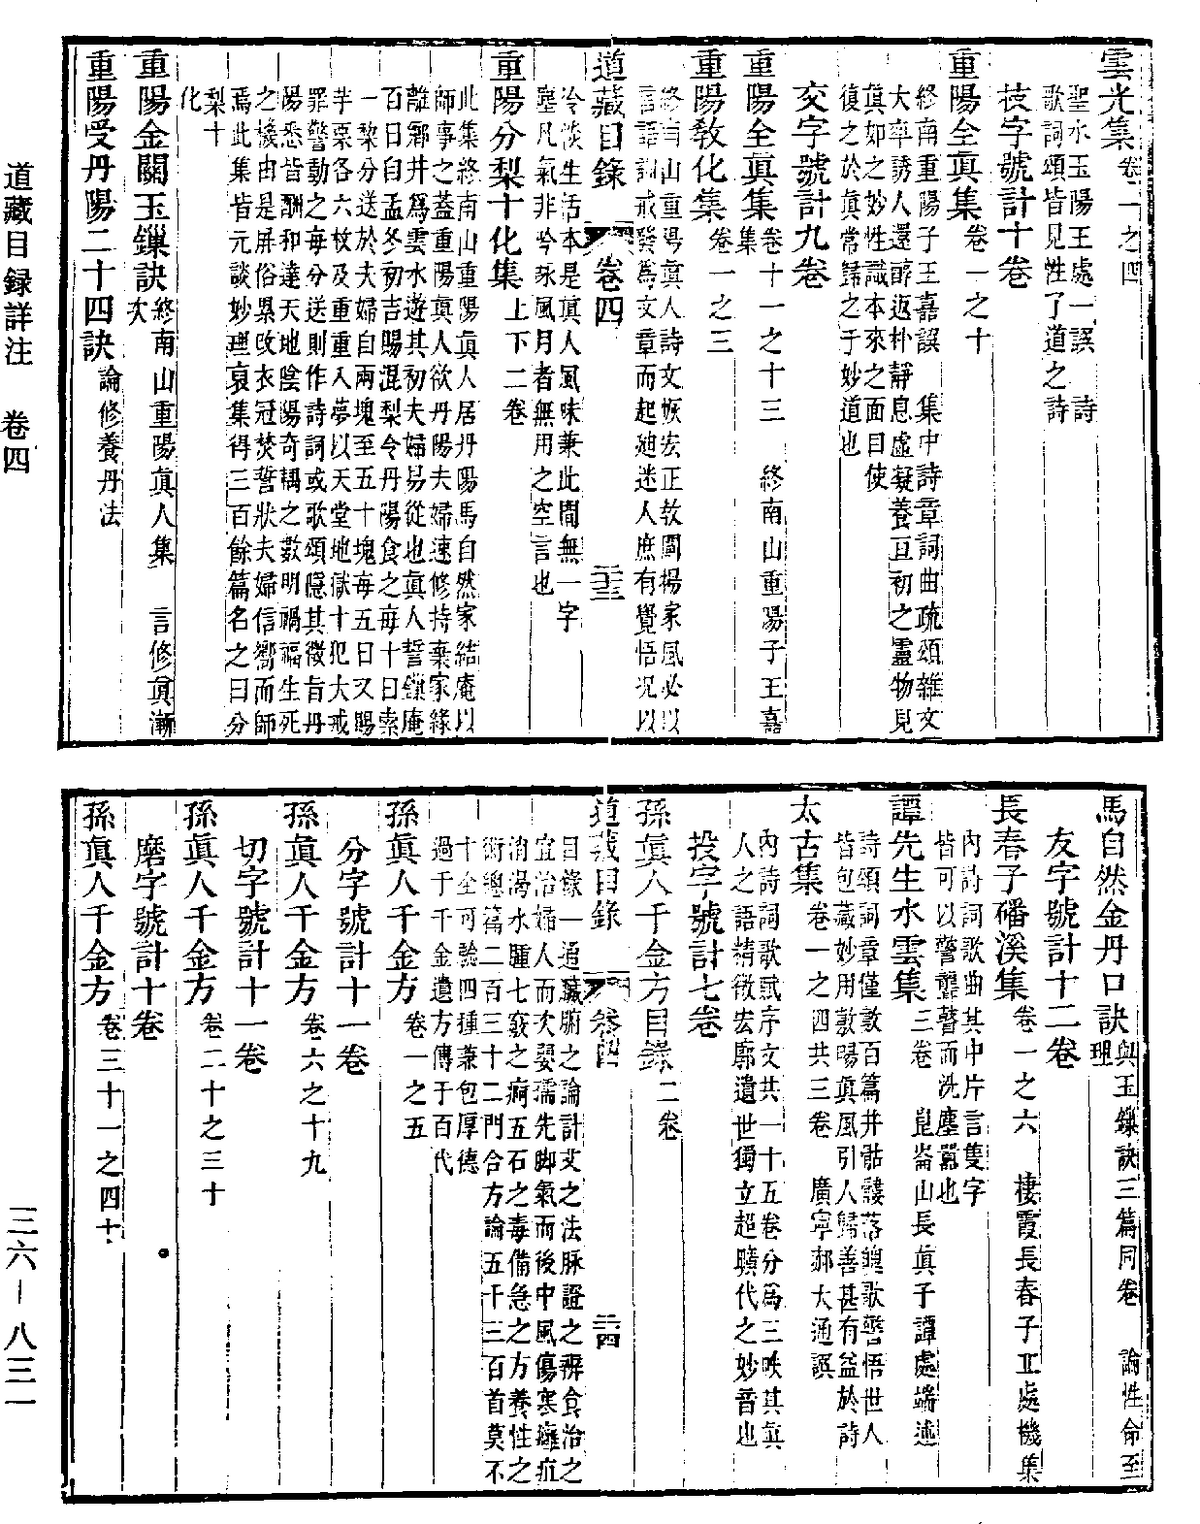 雲光集 卷一之四
聖水玉陽王處一譔 詩
歌詞頌皆見性了道之詩
枝字號計十卷
重陽全眞集 卷一之十
終南重陽子王嘉譔 集中詩章詞曲疏頌雜文
大率誘人還醇返朴靜息虛凝養亘初之靈物見
眞如之妙性識本來之面目使
復之於眞常歸之于妙道也
交字號計九卷
重陽全眞集 卷十一之十三 終南山重陽子王嘉
集
重陽教化集 卷一之三
終南山重陽眞人詩文恢宏正教闡揚家風必以
言語訓戒發爲文章而起迪迷人庶有覺悟况以
道藏目錄 卷四 二十三
冷淡生活本是眞人風味兼此間無一字
塵凡氣非吟咏風月者無用之空言也
重陽分梨十化集 上下二卷
此集終南山重陽眞人居丹陽馬自然家結庵以
師事之葢重陽眞人欲丹陽夫婦速修持棄家緣
離鄉井爲雲水遊其初夫婦昜從也眞人誓鎖庵
百日自孟冬初吉賜混梨令丹陽食之每十日索
一梨分送於夫婦自兩塊至五十塊每五日又賜
芋栗各六枚及重重入夢以天堂地獄十犯大戒
罪警動之每分送則作詩詞或歌頌隱其微旨丹
陽悉皆酬和達天地陰陽奇耦之數明禍福生死
之機由是屏俗累改衣冠焚誓狀夫婦信嚮而師
焉此集皆元談妙理裒集得三百餘篇名之曰分
梨十
化
重陽金關玉鎖訣 終南山重陽眞人集 言修眞漸
次
重陽受丹陽二十四訣 論修養丹法
道藏目錄詳注 卷四
馬自然金丹口訣 與玉鎖訣三篇同卷 論性命至
理
友字號計十二卷
長春子磻溪集 卷一之六 棲霞長春子丘處機集
內詩詞歌曲其中片言隻字
皆可以警聾瞽而洗塵囂也
譚先生水雲集 三卷 崑崙山長眞子譚處端述
詩頌詞章僅數百篇并骷髏落魄歌警悟世人
皆包藏妙用敷暘眞風引人歸善甚有益於詩
太古集 卷一之四共三卷 廣寧郝大通譔
內詩詞歌賦序文共一十五卷分爲三帙其眞
人之語精微宏廓遺世獨立超曠代之妙音也
投字號計七卷
孫眞人千金方目錄 二卷
道藏目錄 卷四 二十四
目錄一通藏腑之論計艾之法脉證之辨食治之
宜治婦人而次嬰孺先脚氣而後中風傷寒癰疽
消渴水腫七竅之痾五石之毒備急之方養性之
術總篇二百三十二門合方論五千三百首莫不
十全可驗四種兼包厚德
過于千金遺方傳于百代
孫眞人千金方 卷一之五
分字號計十一卷
孫眞人千金方 卷六之十九
切字號計十一卷
孫眞人千金方 卷二十之三十
磨字號計十卷
孫眞人千金方 卷三十一之四十
三六—八三一